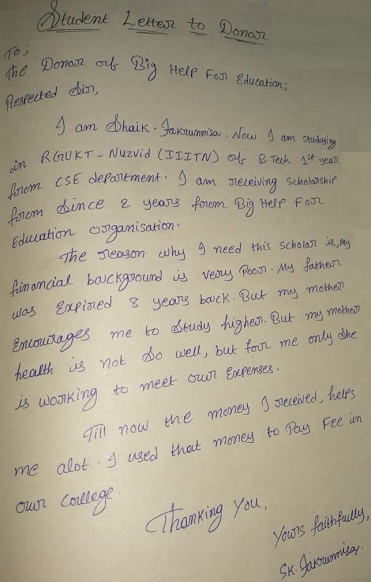 Student Letter to Donor
To;
The Donor of Big Help For Education;
Respected Sir,
I am Shaik. Jakrunnisa. Now I am studying
in RGUKT-Nuzvid (IIITN) of B.Tech 1st year
from CSE department. I am receiving scholarship
from since 2 years from Big Help For
Education organisation.
The reason why I need this scholar is, My
financial background is very Poor. My father
was Expired 8 years back. But my mother
Encourages me to study higher. But my mother
health is not so well, but for me only she
is working to meet our Expenses.
Till now the money I received, helps
me alot. I used that money to Pay Fee in
our college.
Thanking You,
Yours faithfully,
SK. Jakrunnisa.